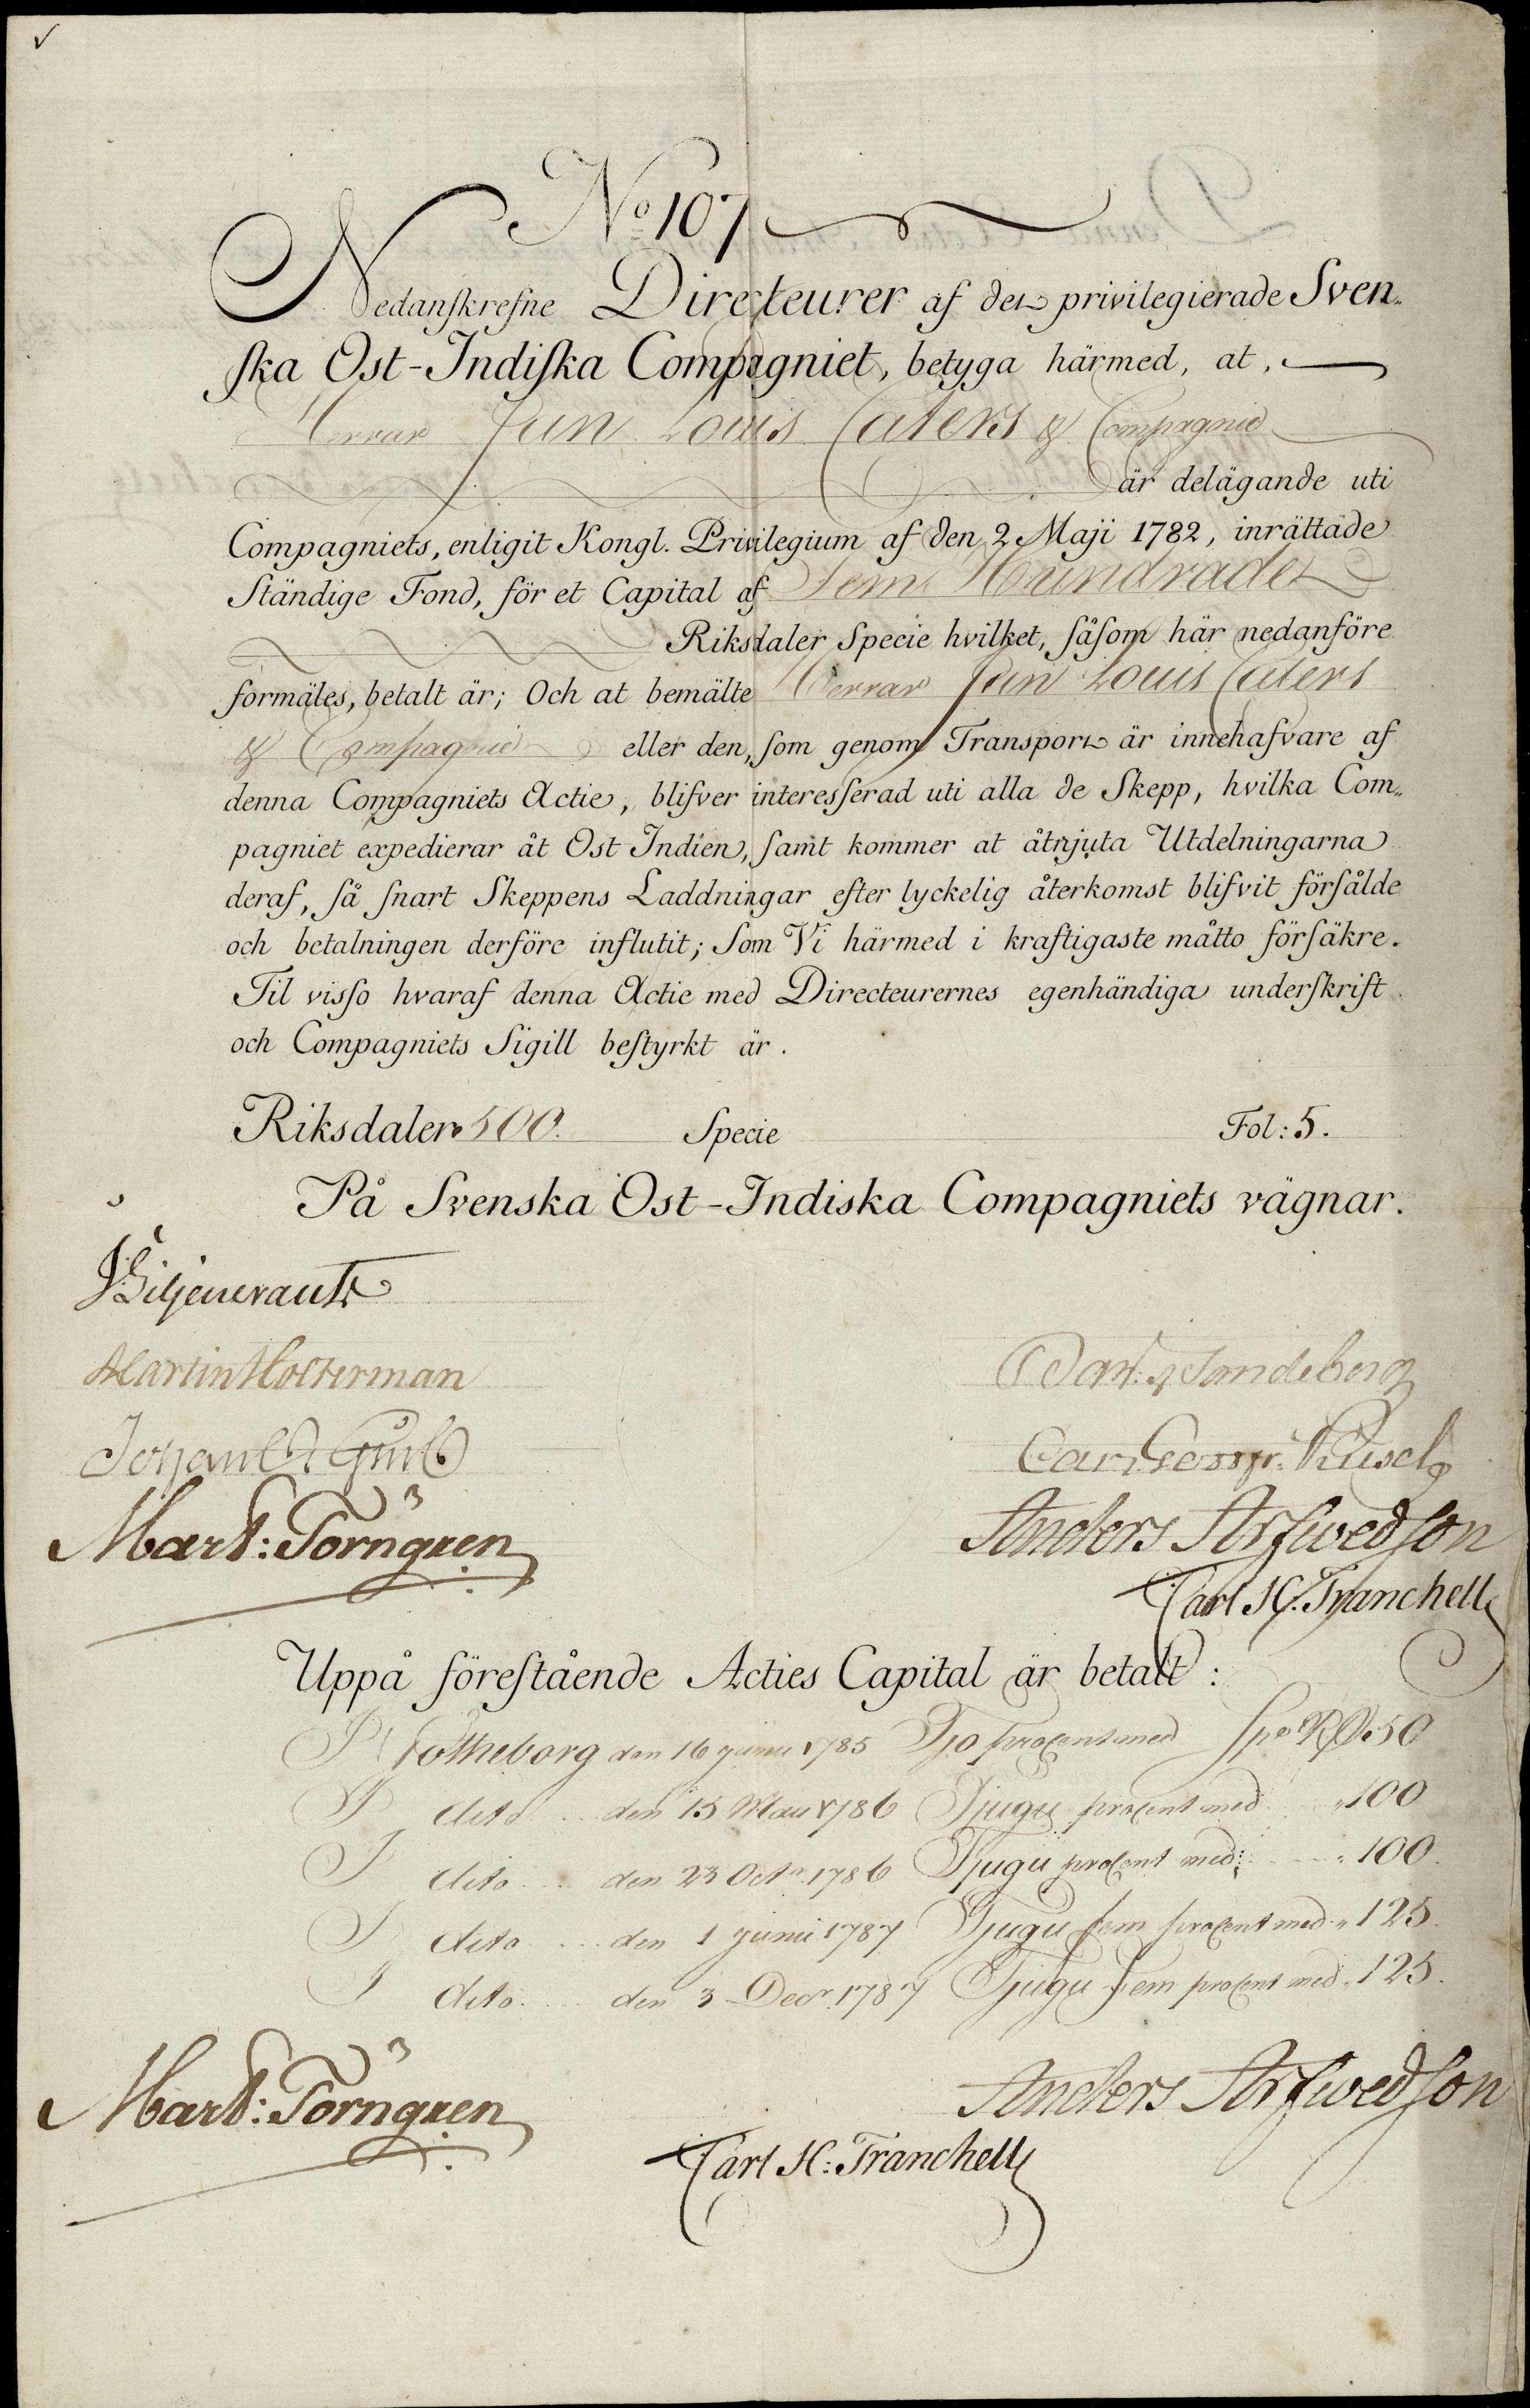 No 107
Nedanskrefne Directeurer af det privilegierade Sven„
ska Ost-Indiska Compagniet, betyga härmed, at,
Herrar Jun Louis Caters & Compagnie
är delägande uti
Compagniets, enligit Kongl. Privilegium af den 2 Maji 1782, inrättade
Ständige Fond, för et Capital af Fem Hundrade
Riksdaler Specie hvilket, såsom här nedanföre
formäles, betalt är; Och at bemälte Herrar Jun Louis Caters
& Compagnie eller den, som genom Transport är innehafvare af
denna Compagniets Actie, blifver interesserad uti alla de Skepp, hvilka Com„
pagniet expedierar åt Ost Indien, samt kommer at åtnjuta Utdelningarna
deraf, så snart Skeppens Laddningar efter lyckelig återkomst blifvit försålde
och betalningen derföre influtit; Som Vi härmed i kraftigaste måtto försäkre.
Til visso hvaraf denna Actie med Directeurernes egenhändiga underskrift
och Compagniets Sigill bestyrkt är.
Riksdaler 500. Specie Fol: 5.
På Svenska Ost-Indiska Compagniets vägnar.
Martin Holterman
Mart: Törngren
Anders Arfwedson
Carl H. Tranchell
Uppå förestående Acties Capital är betalt:
I Götheborg den 16 junii 1785 Tjo procent med Spe RD 50
I dito den 15 Maii 1786 Tjugu procent med „ 100
I dito den 23 Octr 1786 Tjugu procent med: „ 100.
I dito den 1 junii 1787 Tjugu fem procent med „ 125.
I dito den 3 Decr. 1787 Tjugu fem procent med „ 125.
Mart: Törngren
Anders Arfwedson
Carl H: Tranchell